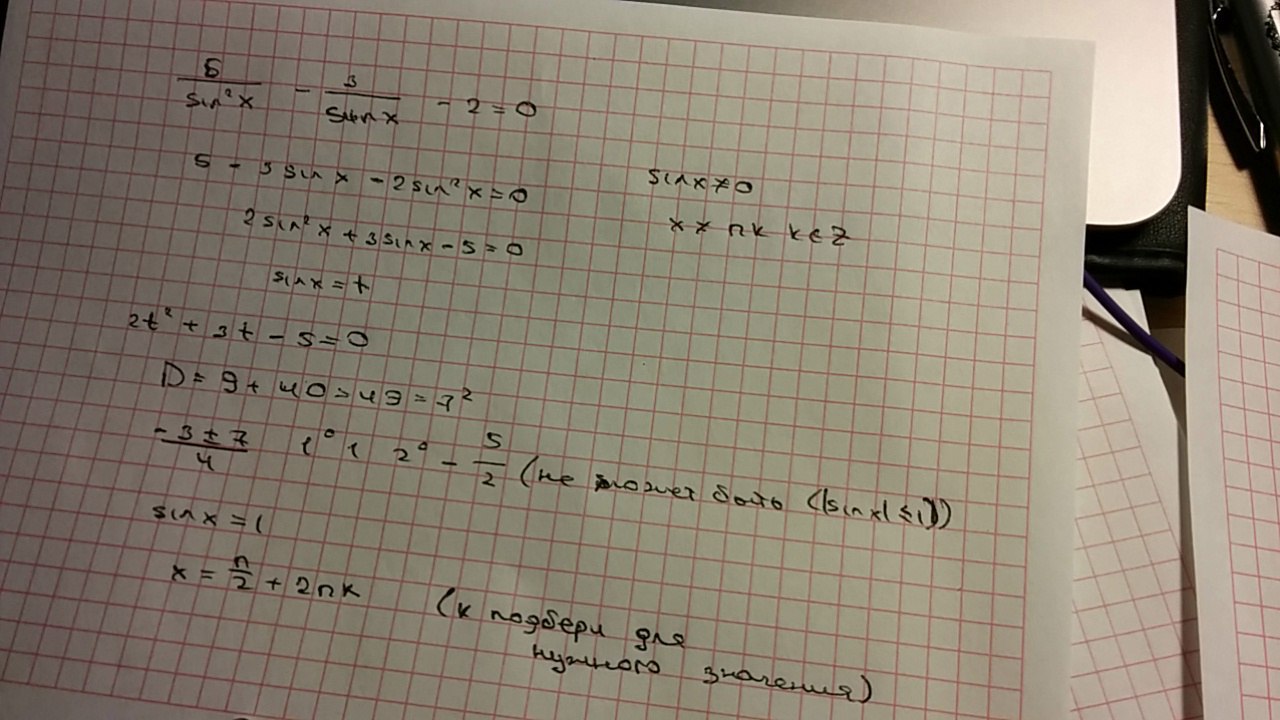 5/sin²x - 3/sinx - 2 = 0
5 - 3sinx - 2sin²x = 0
sinx ≠ 0
2sin²x + 3sinx - 5 = 0
x ≠ πk k∈Z
sinx = t
2t² + 3t - 5 = 0
D = 9 + 40 = 49 = 7²
(-3 ± 7)/4 1° 1 2° -5/2 (не может быть (|sinx| ≤ 1))
sinx = 1
x = π/2 + 2πk
(к подбери для
нужного значения)